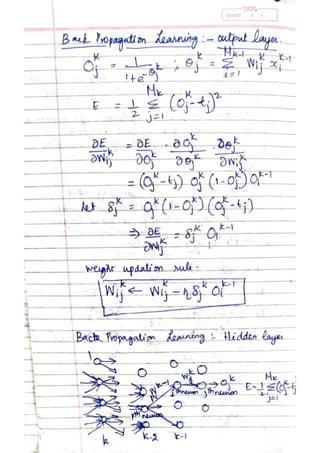 DATE
Back Propagation Learning :- output layer.
O_j^k = 1 / (1+e^{-θ_j^k}) ; θ_j^k = Σ_{i=1}^{M_{k-1}} W_{ij}^k x_i^{k-1}
E = 1/2 Σ_{j=1}^{M_k} (O_j^k - t_j)^2
∂E/∂W_{ij}^k = ∂E/∂O_j^k . ∂O_j^k/∂θ_j^k . ∂θ_j^k/∂W_{ij}^k
= (O_j^k - t_j) O_j^k (1-O_j^k) O_i^{k-1}
let δ_j^k = O_j^k (1-O_j^k) (O_j^k - t_j)
⇒ ∂E/∂W_{ij}^k = δ_j^k O_i^{k-1}
weight updation rule.
W_{ij}^k ← W_{ij}^k - η δ_j^k O_i^{k-1}
Back Propagation Learning :- Hidden layer
1
W_{ij}^k O_j^k E = 1/2 Σ_{j=1}^{M_k} (O_j^k - t_j
W^{k-1} ith neuron jth neuron
neuron
k k-2 k-1